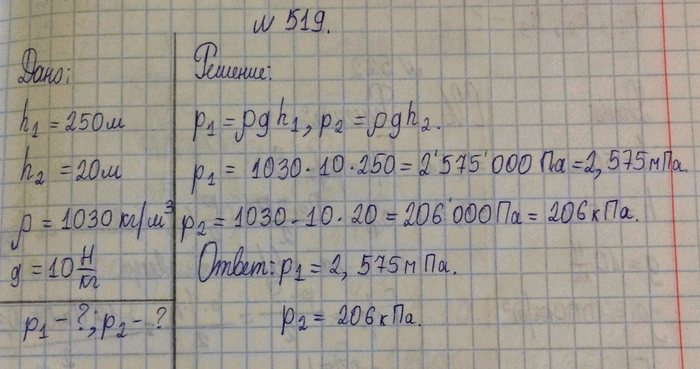 № 519.
Дано:
h₁ = 250м
h₂ = 20м
ρ = 1030 кг/м³
g = 10 Н/кг
p₁ - ?; p₂ - ?
Решение:
p₁ = ρgh₁, p₂ = ρgh₂.
p₁ = 1030 · 10 · 250 = 2'575'000 Па = 2,575мПа.
p₂ = 1030 · 10 · 20 = 206'000Па = 206кПа.
Ответ: p₁ = 2,575мПа.
p₂ = 206кПа.